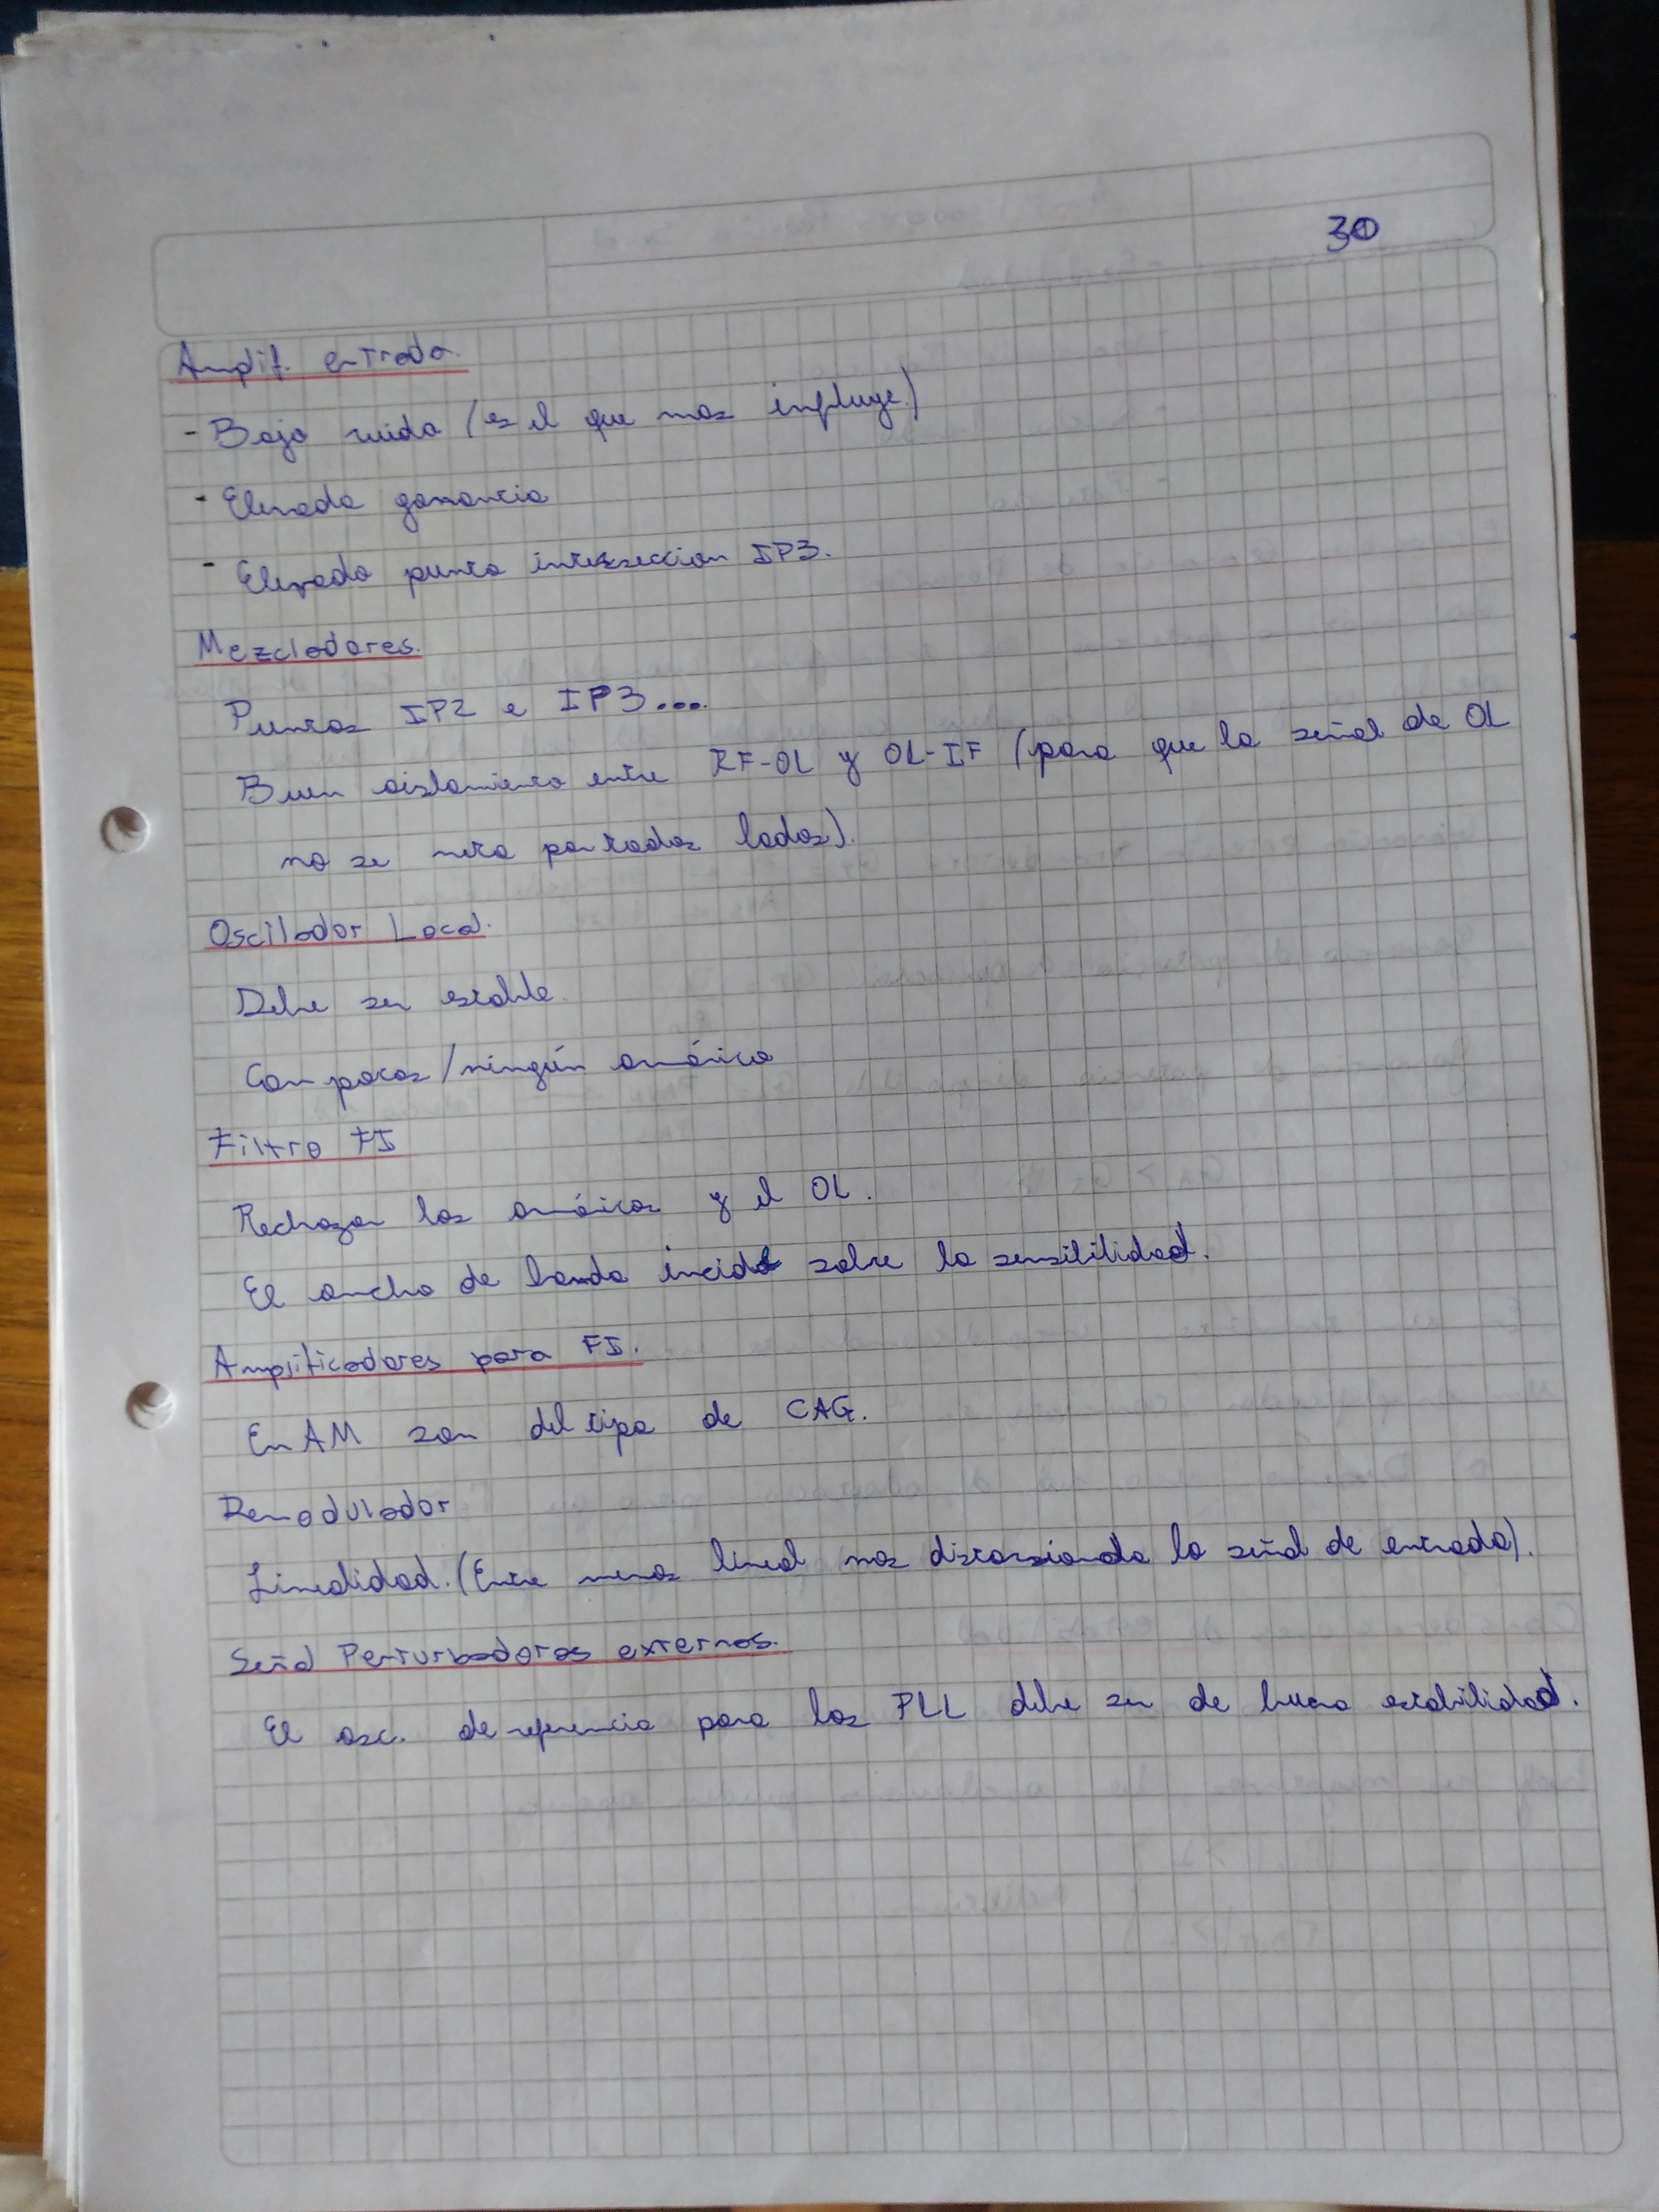 30
Amplif. entrada.
- Bajo ruido (es el que mas influye.)
- Elevada ganancia
- Elevado punto intersección IP3.
Mezcladores.
Puntos IP2 e IP3...
Buen aislamiento entre RF-OL y OL-IF (para que la señal de OL
no se meta por todos lados).
Oscilador Local.
Debe ser estable.
Con pocos/ningún armónico
Filtro FI
Rechazar los armónicos y el OL.
El ancho de banda incide sobre la sensibilidad.
Amplificadores para FI.
En AM son del tipo de CAG.
Demodulador
Linealidad. (Entre menos lineal mas distorsionada la señal de entrada).
Señal Perturbadoras externas.
El osc. de referencia para los PLL debe ser de buena estabilidad.